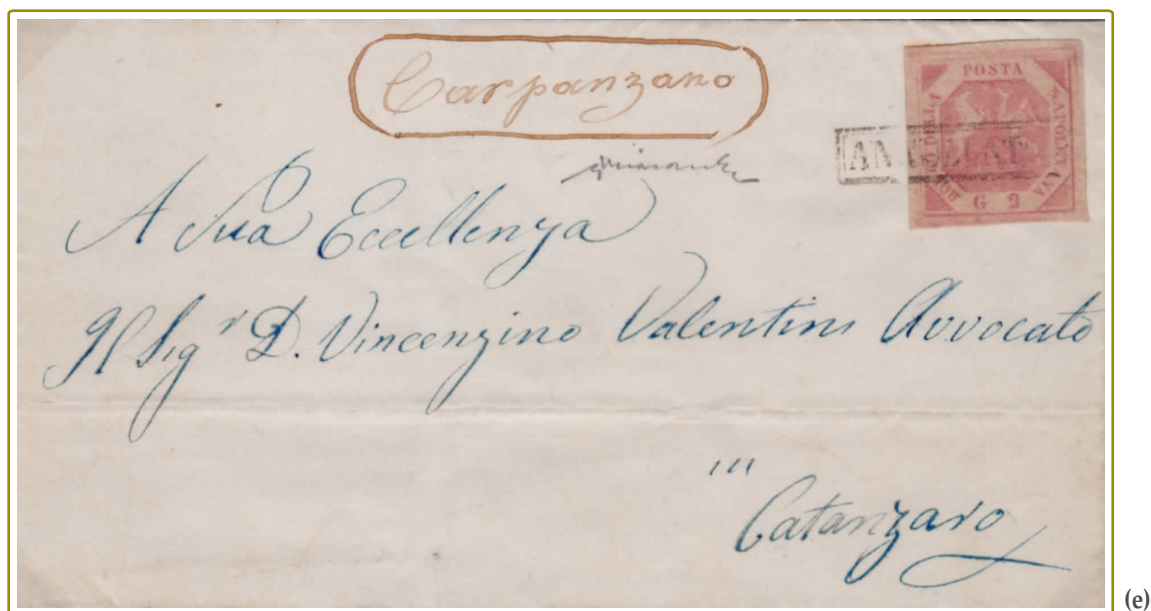 Carpanzano
POSTA
BOLLO DELLA
NAPOLETANA
G 2
ANNULLATO
A Sua Eccellenza
Il Sigʳ D. Vincenzino Valentini Avvocato
Catanzaro
(e)